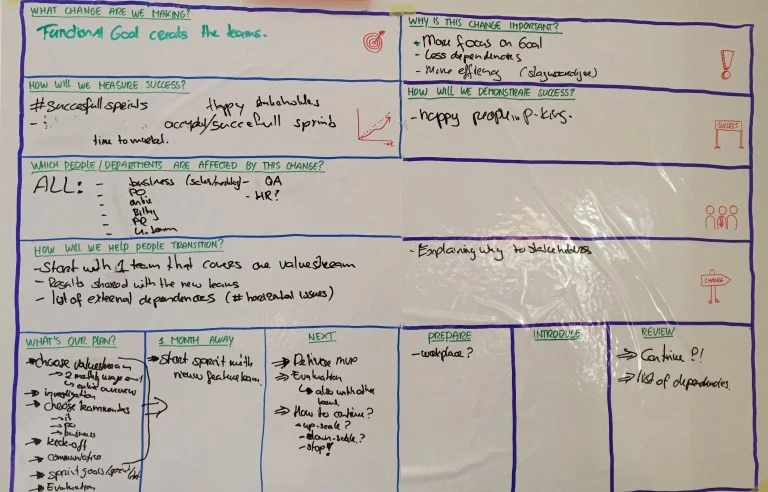 WHAT CHANGE ARE WE MAKING?
Functional Goal the teams.
WHY IS THIS CHANGE IMPORTANT?
+ More focus on Goal
- Less dependencies
- More
HOW WILL WE MEASURE SUCCESS?
#Succesfull sprints
Happy stakeholders
/succesfull sprints
time to market.
HOW WILL WE DEMONSTRATE SUCCESS?
- happy people in P-king.
SUCCES!
WHICH PEOPLE/DEPARTMENTS ARE AFFECTED BY THIS CHANGE?
ALL:
- business
- QA
- PO
- HR?
-
- Billing
- PR
-
HOW WILL WE HELP PEOPLE TRANSITION?
- Start with 1 team that covers one valuestream
- Results shared with the new teams
- list of external dependencies (# horizontal issues)
- Explaining why to stakeholders
CHANGE
WHAT'S OUR PLAN?
→ choose valuestream
→ 2
overview
→ investigation
→ choose teammates
→ it
→ po
→ business
→ kick-off
→ communication
→ sprint goals
→ Evaluation
1 MONTH AWAY
→ Start sprint with
new feature team.
NEXT
⇒ Deliver mvp
⇒ Evaluation
↳ also with other
teams.
⇒ How to continue?
- up-scale?
- down-scale?
- stop!
PREPARE
- workplace?
INTRODUCE
REVIEW
⇒ Continue?!
⇒ list of dependencies.